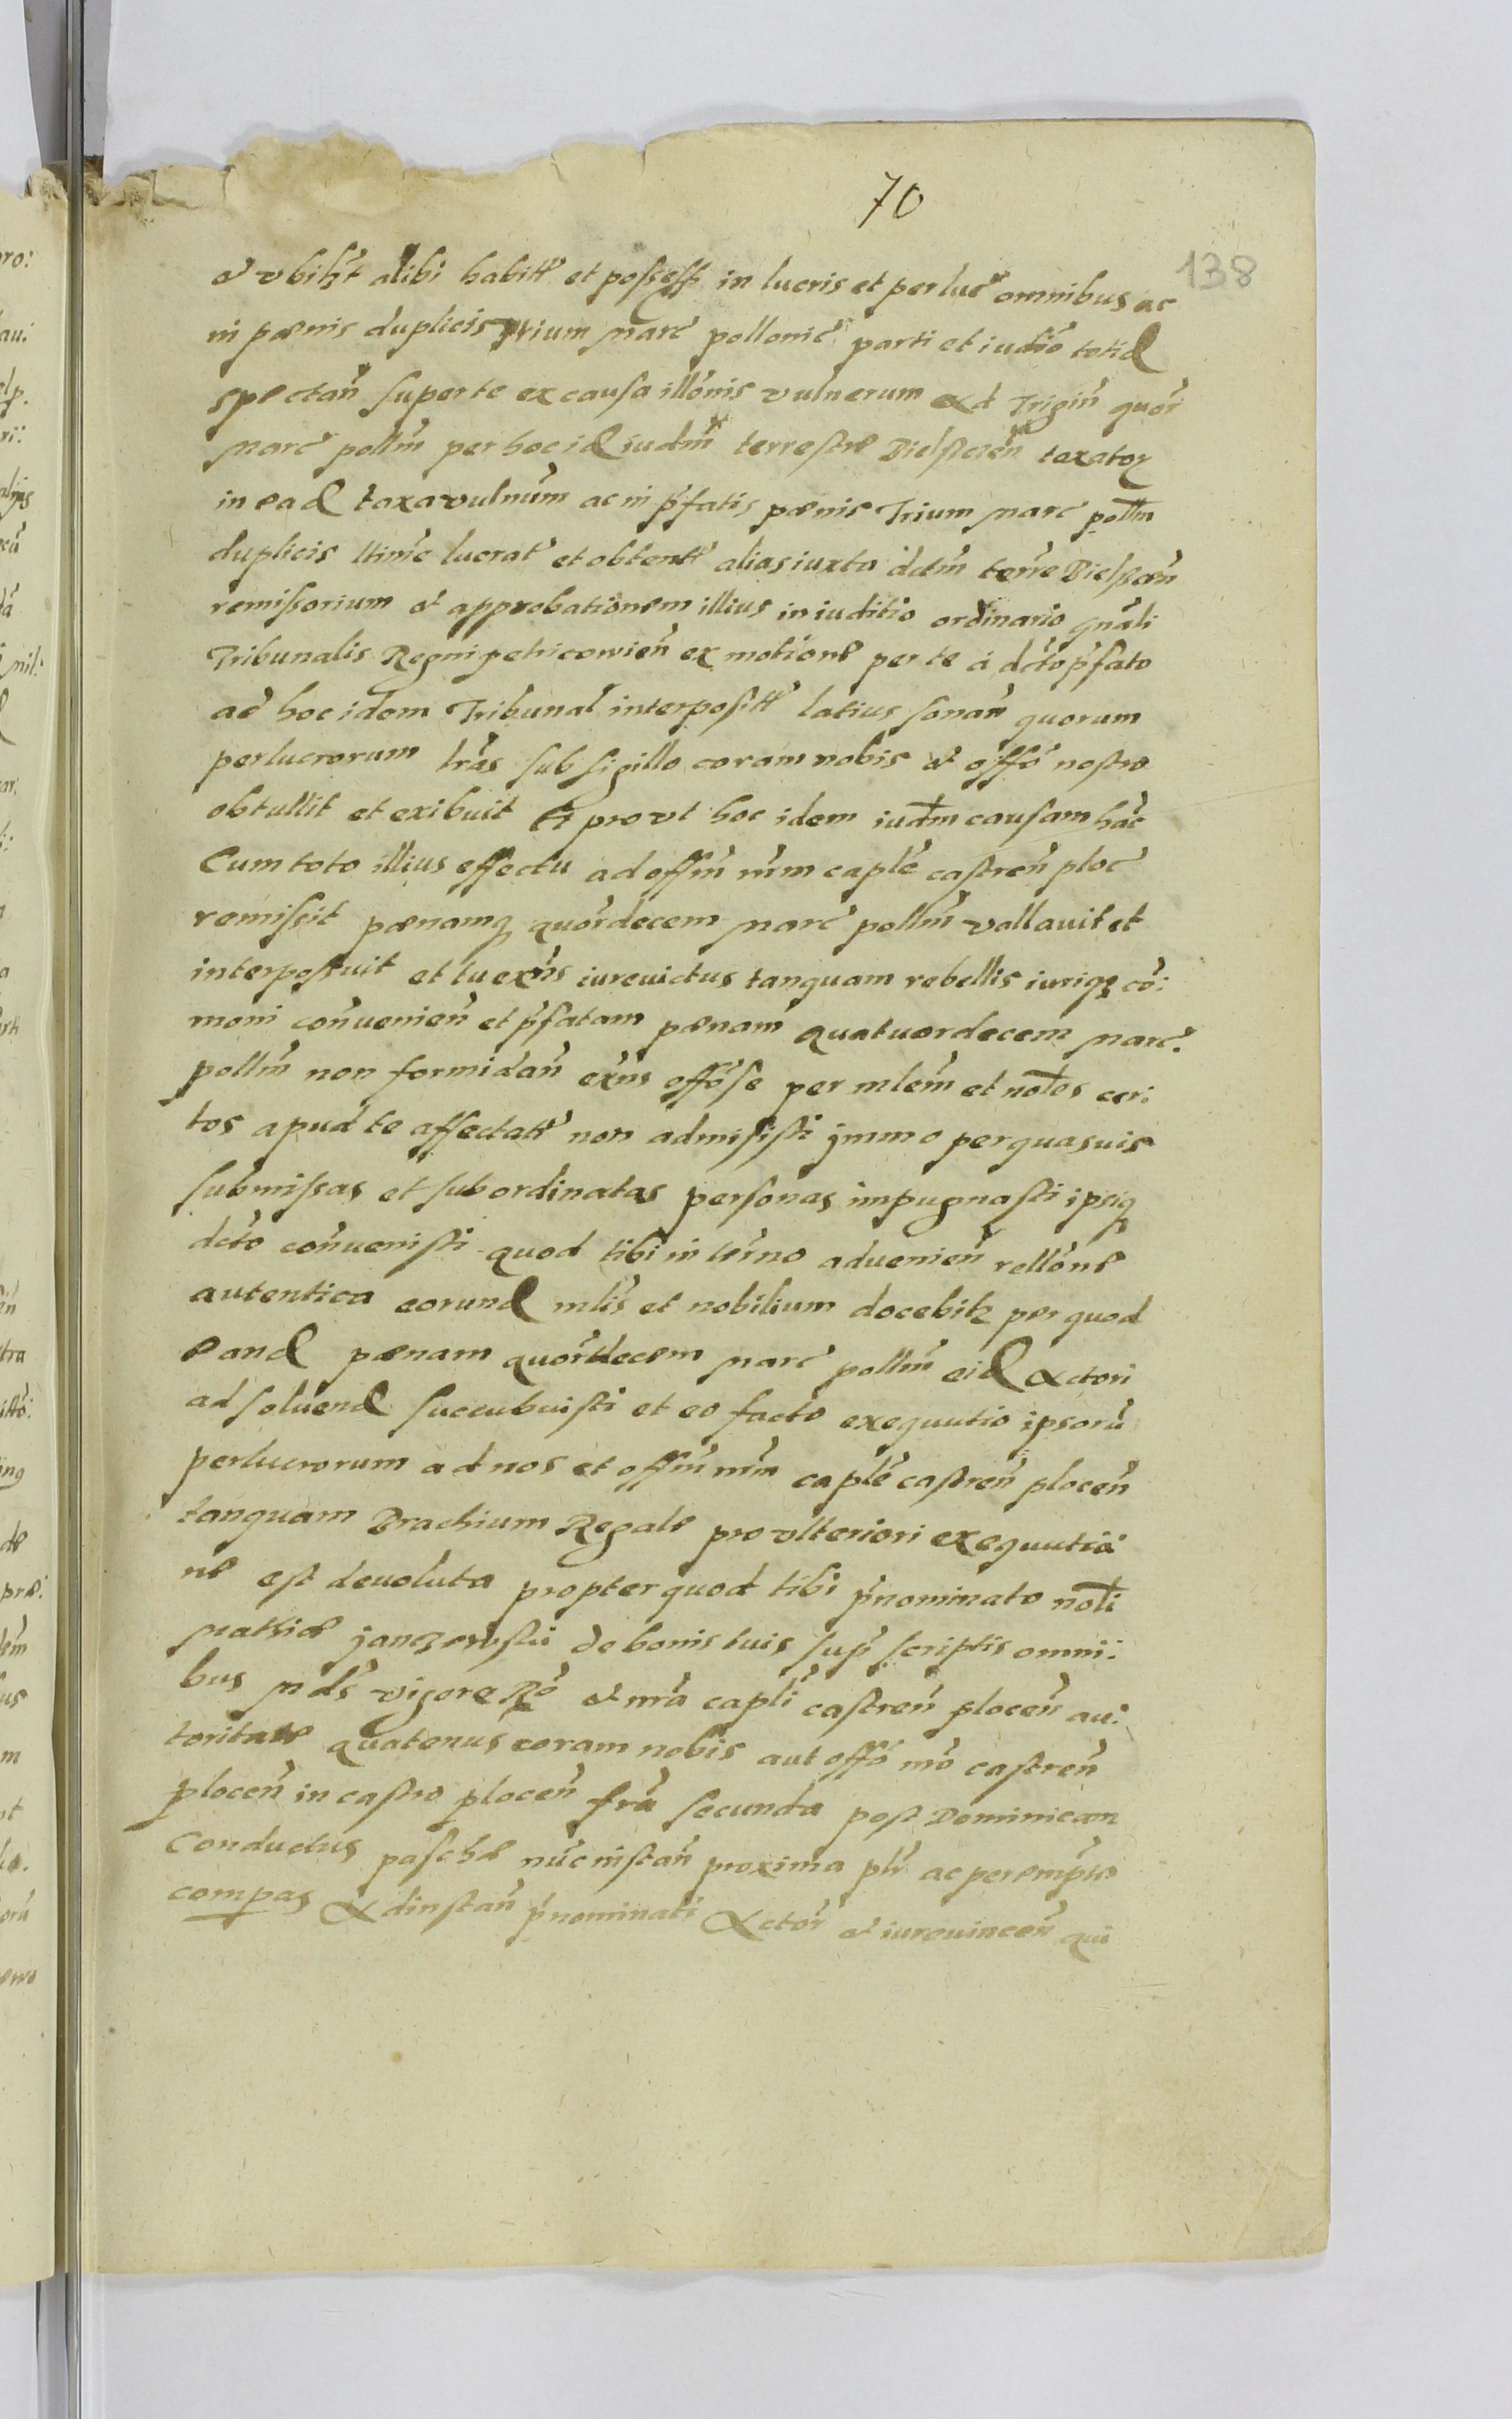 70
138
et vbihẽt alibi habitt et possess in lucris et perluc omnibus ac
in pœnis duplicis trium Marc pollonic parti et iudio totid
spectan super te ex causa illonis vulnerum ad Trigin quor
Marc pollm per hoc id iudm terrestre Bielscen taxatoz
in ead taxa vulnum ac in pfatis pœnis Trium Marc pollm
duplicis ltime lucrat et obtentt alias iuxta dctm terre Bielscen
remissorium et approbationem illius in iuditio ordinario gnali
Tribunalis Regni petricovien ex motione per te a dcto pfato
ad hoc idem Tribunal interpositt latius sonan quorum
perlucrorum lras sub sigillo coram nobis et offo nostro
obtullit et exibuit Et prout hoc idem iudm causam hac
Cum toto illius effectu ad offm nrm caple castren ploc
remissit pœnamq quordecem Marc pollm vallauit et
interposuit et tu exns iurevictus tanquam rebellis iuriq3 co:
moni convenien et pfatam pœnam quatuordecem Marc.
pollm non formidan exns offose per mlem et nobles ceri:
tos apud te affectatt non admisisti jmmo per quasuis
submissas et subordinatas personas impugnasti ipsiq
dcto convenisti quod tibi in terno aduenien rellone
autentica eorund mlis et nobilium docebitz per quod
eand pœnam quordecem Marc pollm eid Actori
ad soluend succubuisti et eo facto exequutio ipsoru
perlucrorum ad nos et offm nrm caple castren plocen
tanquam Brachium Regale pro vlteriori exequutio:
ne est deuoluta propter quod tibi pnominato nobli
Mathie janczewskii de bonis tuis sup scriptis omni:
bus Mds vigore Ro et nra capli castren plocen au:
toritate quatenus coram nobis aut offo nro castren
plocen in castro plocen fria secunda post Dominicam
Conductus pasche nuc instan proxima plr ac perempto
compas Ad instan pnominati Actor et iurevincen qui